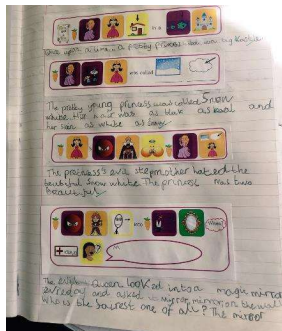 in a
Once upon a time a pretty princess
was called
The pretty young princess was called Snow
white. Her hair was as black as coal and
her skin as white as
The princess's evil stepmother hated the
beautiful Snow white. The princess was too
beautiful
The Queen looked into a magic mirror
everyday and asked us mirror mirror on the wall
Who is the fairest one of all? The mirror